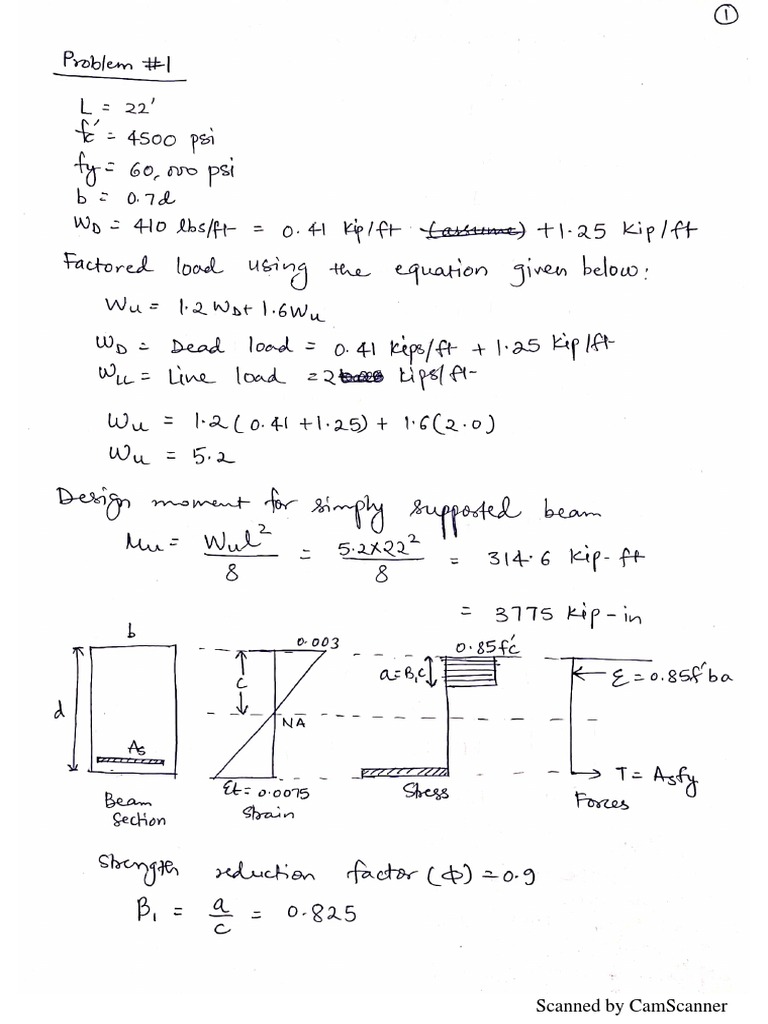 ①
Problem #1
L = 22'
fc' = 4500 psi
fy = 60,000 psi
b = 0.7d
WD = 410 lbs/ft = 0.41 kip/ft (assume) + 1.25 kip/ft
Factored load using the equation given below:
Wu = 1.2 WD + 1.6 Wu
WD = Dead load = 0.41 kips/ft + 1.25 kip/ft
WLL = Line load = 2 kips/ft
Wu = 1.2(0.41 + 1.25) + 1.6(2.0)
Wu = 5.2
Design moment for simply supported beam
Mu = Wul²/8 = 5.2×22²/8 = 314.6 kip-ft
= 3775 kip-in
b
d
As
Beam Section
0.003
c
NA
Et = 0.0075
Strain
0.85fc'
a=B,c
Stress
ε = 0.85f'ba
T = Asfy
Forces
Strength reduction factor (Φ) = 0.9
B₁ = a/c = 0.825
Scanned by CamScanner